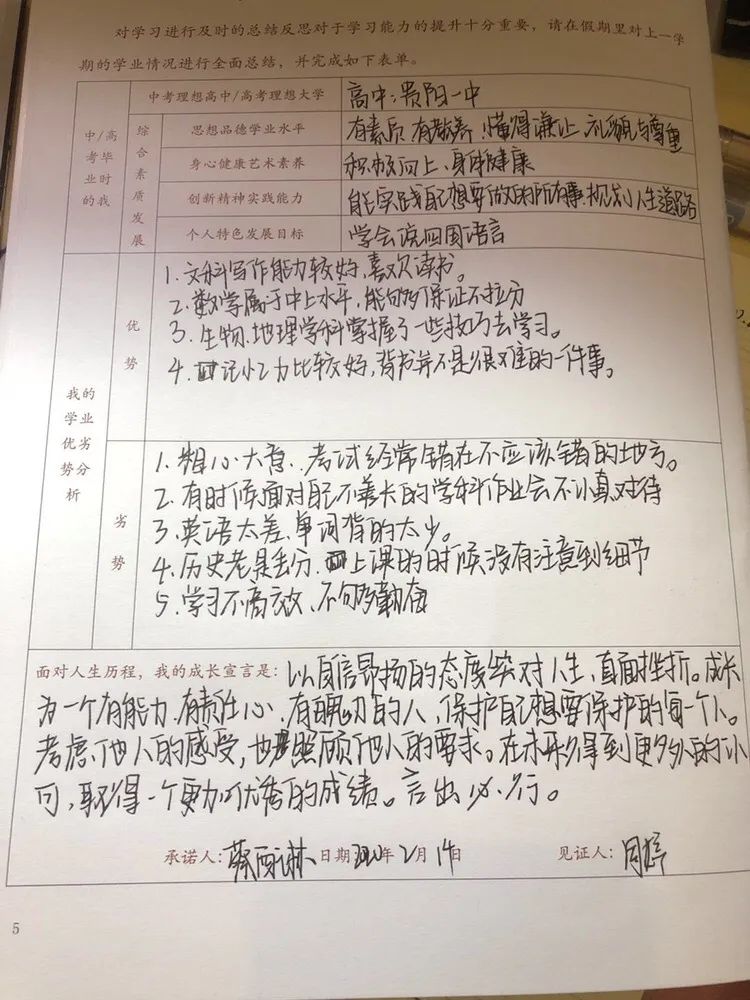 对学习进行及时的总结反思对于学习能力的提升十分重要，请在假期里对上一学
期的学业情况进行全面总结，并完成如下表单。
中/高考毕业时的我
综合素质发展
中考理想高中/高考理想大学 高中：贵阳一中
思想品德学业水平 有素质 有教养 懂得谦让 礼貌与尊重
身心健康艺术素养 积极向上、身体健康
创新精神实践能力 能实践自己想要做的所有事.规划人生道路
个人特色发展目标 学会说四国语言
我的学业优劣势分析
优势
1. 文科写作能力较好，喜欢读书。
2. 数学属于中上水平，能够保证不拉分
3. 生物、地理学科掌握了一些技巧去学习。
4. 记忆力比较好，背书并不是很难的一件事。
劣势
1. 粗心大意、考试经常错在不应该错的地方。
2. 有时候面对自己不善长的学科作业会不认真对待
3. 英语太差、单词背的太少。
4. 历史老是丢分、上课的时候没有注意到细节
5. 学习不高效、不够勤奋
面对人生历程，我的成长宣言是：以自信昂扬的态度笑对人生，直面挫折。成长
为一个有能力.有责任心.有魄力的人，保护自己想要保护的每一个人。
考虑他人的感受，也照顾他人的要求。在未来得到更多人的认
可，取得一个更加优秀的成绩。言出必行。
承诺人： 日期2020年2月14日 见证人：周婷
5